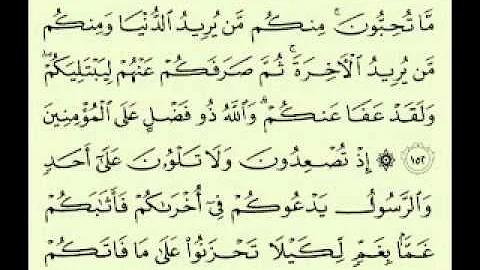 مَّا تُحِبُّونَ ۚ مِنكُم مَّن يُرِيدُ ٱلدُّنْيَا وَمِنكُم
مَّن يُرِيدُ ٱلْأَخِرَةَ ۚ ثُمَّ صَرَفَكُمْ عَنْهُمْ لِيَبْتَلِيَكُمْ ۖ
وَلَقَدْ عَفَا عَنكُمْ ۗ وَٱللَّهُ ذُو فَضْلٍ عَلَى ٱلْمُؤْمِنِينَ
١٥٢ ۞ إِذْ تُصْعِدُونَ وَلَا تَلْوُۥنَ عَلَىٰٓ أَحَدٍ
وَٱلرَّسُولُ يَدْعُوكُمْ فِىٓ أُخْرَىٰكُمْ فَأَثَٰبَكُمْ
غَمًّۢا بِغَمٍّ لِّكَيْلَا تَحْزَنُوا۟ عَلَىٰ مَا فَاتَكُمْ